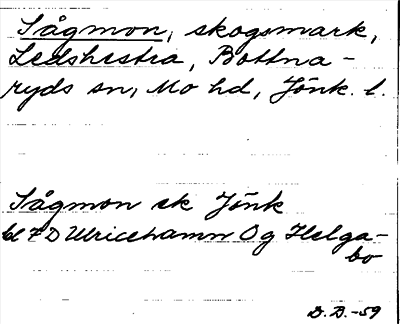 Sågmon, skogsmark,
Ledshestra, Bottna-
ryds sn, Mo hd, Jönk. l.
Sågmon sk Jönk
bl 7D Ulricehamn Og Helga-
bo
D.D.-59